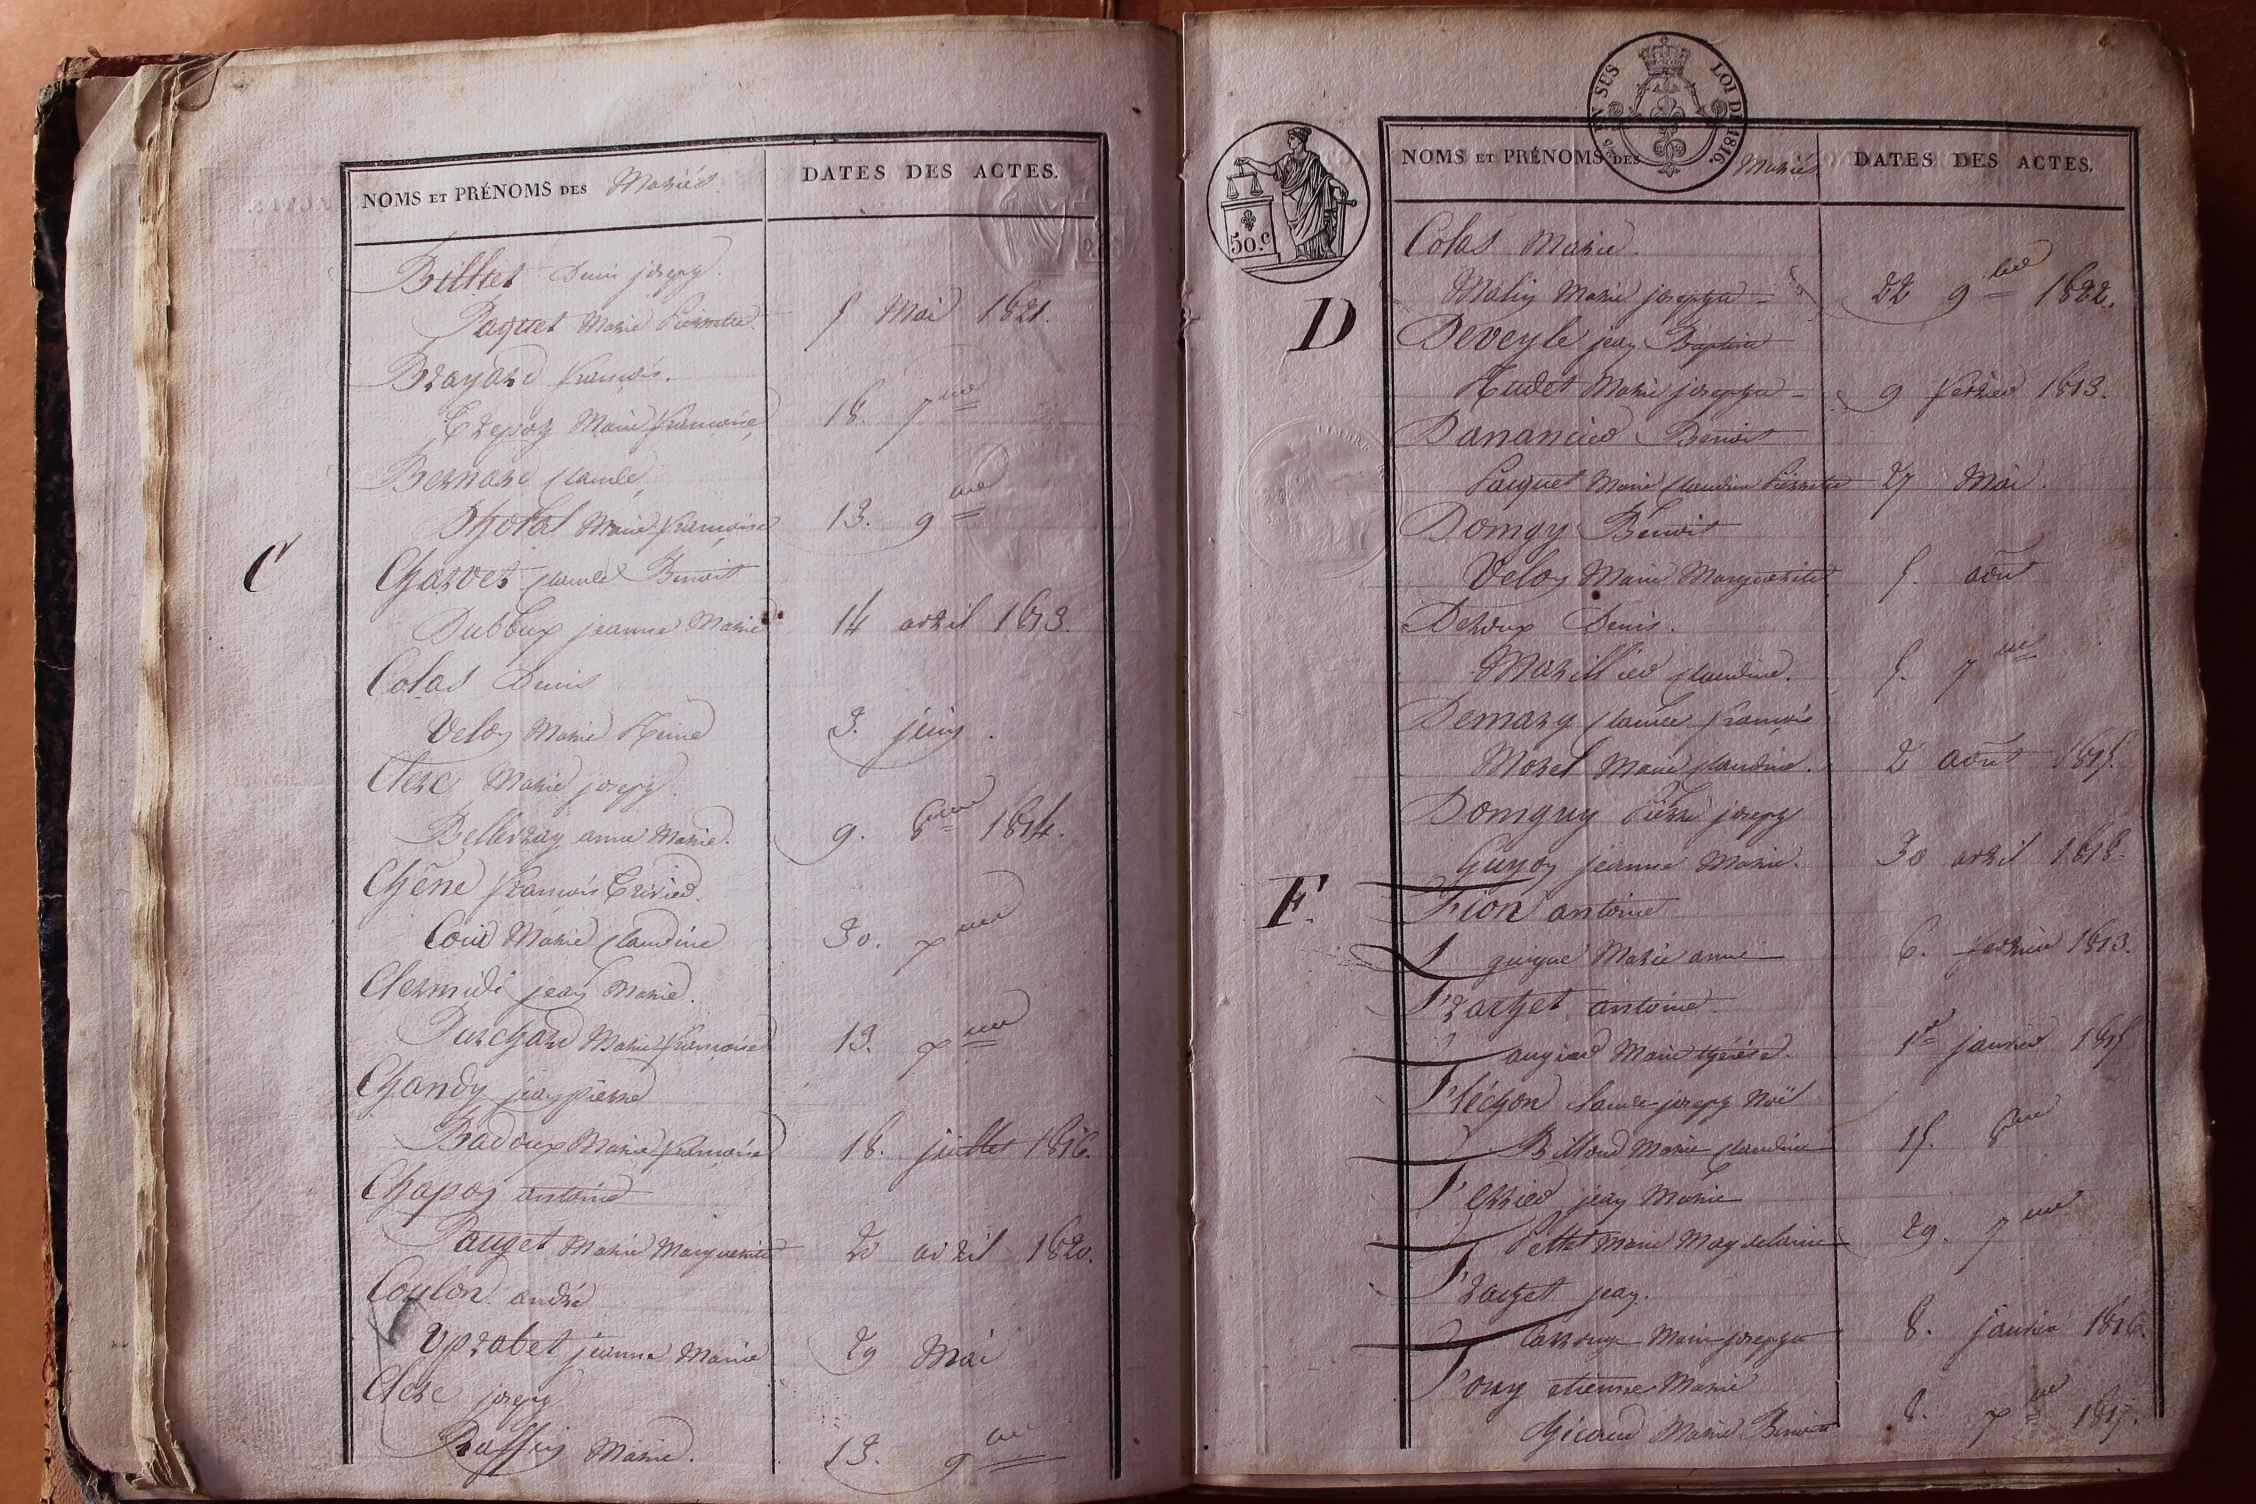 NOMS ET PRÉNOMS DES Mariés. DATES DES ACTES.
Billiet Denis joseph.
Paquet Marie Pierrette. 5 Mai 1821.
Brayard françois.
Trepoz Marie françoise 18. 7bre
Bernard claude
Marie françoise 13. 9bre
C
Charvet claude Benoit
Dubbux jeanne Marie 14 avril 1813.
Colas Denis
Veloz Marie Reine 3. juin.
Clerc Marie joseph.
anne Marie. 9. 8bre 1814.
Chêne françois
Marie claudine 30. xbre
Clermidi jean Marie.
Purchard Marie françoise 13. xbre
Chandy jean pierre
Badoux Marie françoise 18. juillet 1816.
Chapoz antoine
Pauget Marie Marguerite 20 avril 1820.
Coulon andré
Vprabet jeanne Marie 29 Mai
Clerc joseph
Ruffin Marie. 13. 9bre
TIMBRE
EN SUS LOI DE 1816.
50.c
NOMS ET PRÉNOMS DES Mariés DATES DES ACTES.
Colas Marie.
Malin Marie josephte 22 9bre 1822.
D
Deveyle jean Baptiste
Rudet Marie josephte 9 fevrier 1813.
Danancier Benoit
Paquet Marie claudine Pierrette 27 Mai.
Domgy Benoit
Veloz Marie Marguerite 5. août
Deroux Denis.
Marillier claudine. 5. 7bre
Demary claude françois
Morel Marie claudine. 2 août 1815.
Domguy Pierre joseph
Guyoz jeanne Marie. 30 avril 1818.
F.
Fion antoine
guigue Marie anne 6. fevrier 1813.
Frachet antoine
augier Marie thérèse. 1er janvier 1815
Fléchon claude joseph Noël
Billoud Marie claudine 15. 8bre
Ferrier jean Marie
Pettet Marie Magdelaine 29. 7bre
Frachet jean.
Carroux Marie josephte 8. janvier 1816.
Foray etienne Marie
Marie Benoite 8. xbre 1817.